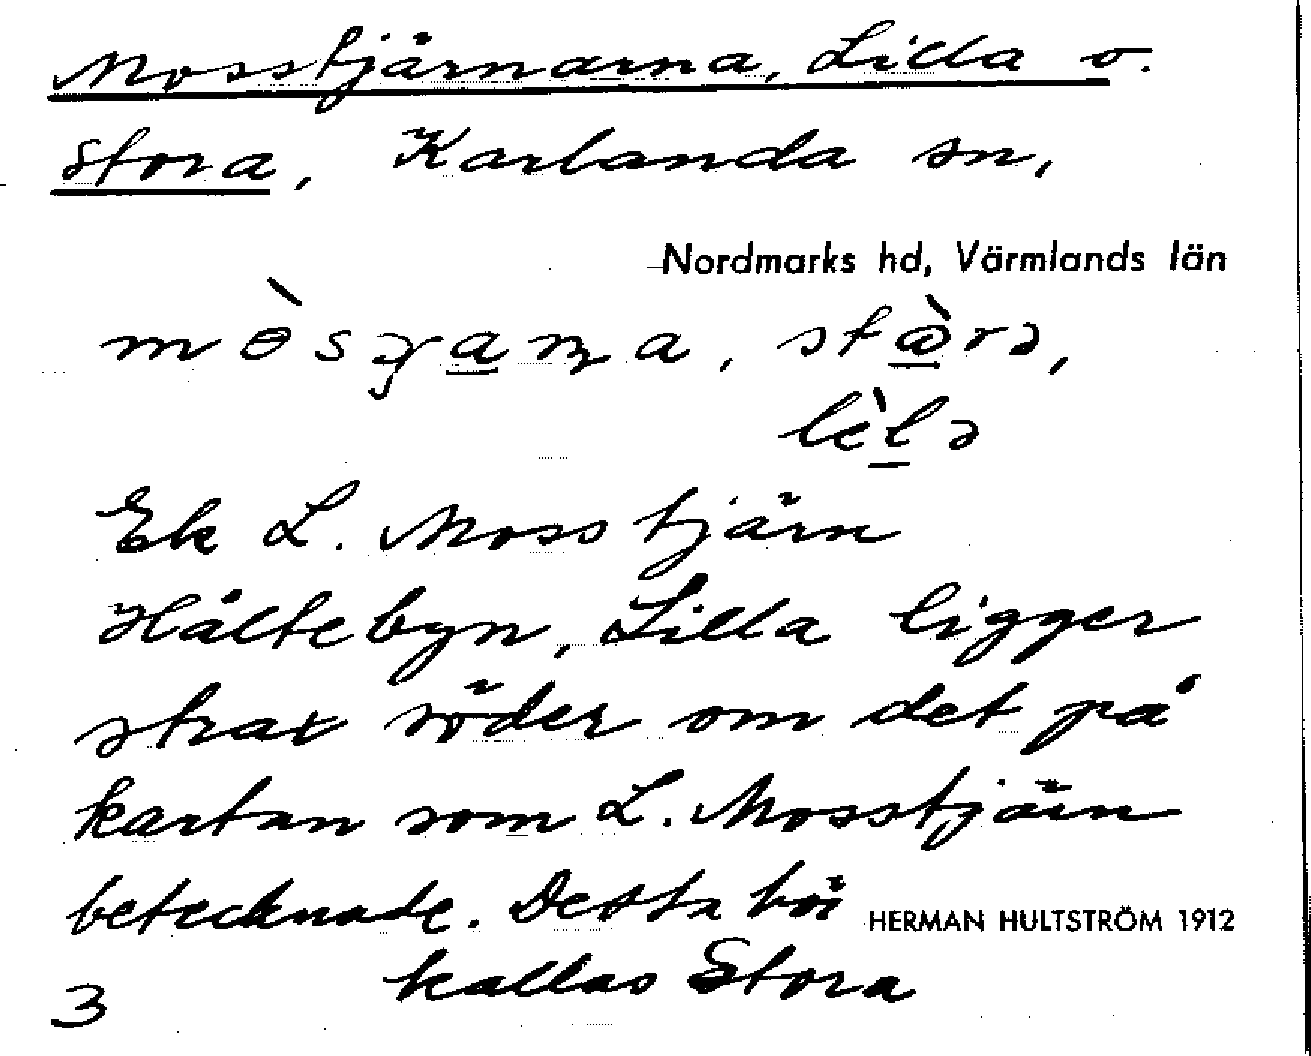 Mosstjärnarna, Lilla o.
Stora, Karlanda sn,
Nordmarks hd, Värmlands län
Ek L. Mosstjärn
Hältebyn, Lilla ligger
strax söder om det på
kartan som L. Mosstjärn
betecknade. Detta bör
HERMAN HULTSTRÖM 1912
kallas Stora
3